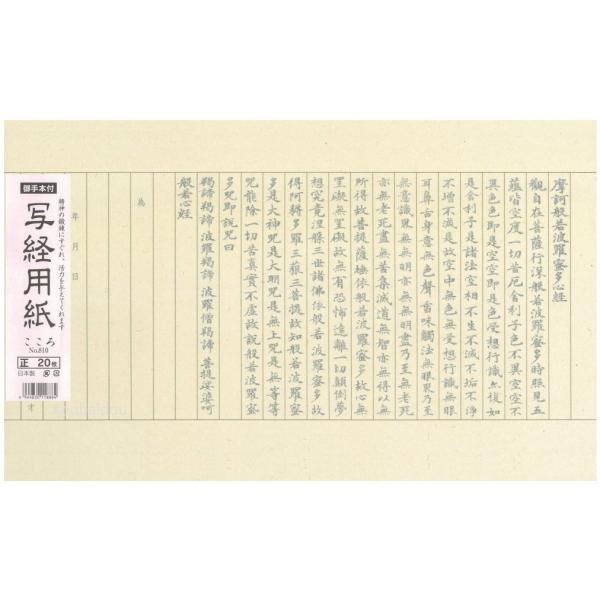 摩訶般若波羅蜜多心経
觀自在菩薩行深般若波羅蜜多時照見五
蘊皆空度一切苦厄舍利子色不異空空不
異色色即是空空即是色受想行識亦復如
是舍利子是諸法空相不生不滅不垢不浄
不增不減是故空中無色無受想行識無眼
耳鼻舌身意無色聲香味觸法無眼界乃至
無意識界無無明亦無無明盡乃至無老死
亦無老死盡無苦集滅道無智亦無得以無
所得故菩提薩埵依般若波羅蜜多故心無
罣礙無罣礙故無有恐怖遠離一切顛倒夢
想究竟涅槃三世諸佛依般若波羅蜜多故
得阿耨多羅三藐三菩提故知般若波羅蜜
多是大神咒是大明咒是無上咒是無等等
咒能除一切苦真實不虚故説般若波羅蜜
多咒即説咒曰
羯諦羯諦 波羅羯諦 波羅僧羯諦 菩提娑婆呵
般若心経
為
年 月 日
御手本付
写経用紙
精神の鍛錬にすぐれ、活力を与えてくれます
こころ
No.810
正 20枚
日本製